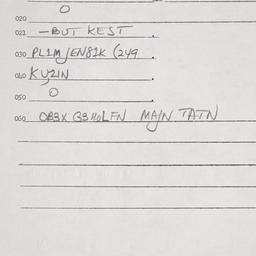 O
020
021 -BUT KEST .
030 PL1M JEN81K (249 .
040 KUZIN .
050 O .
060 OB3X GBHOLFN MAJN TATN